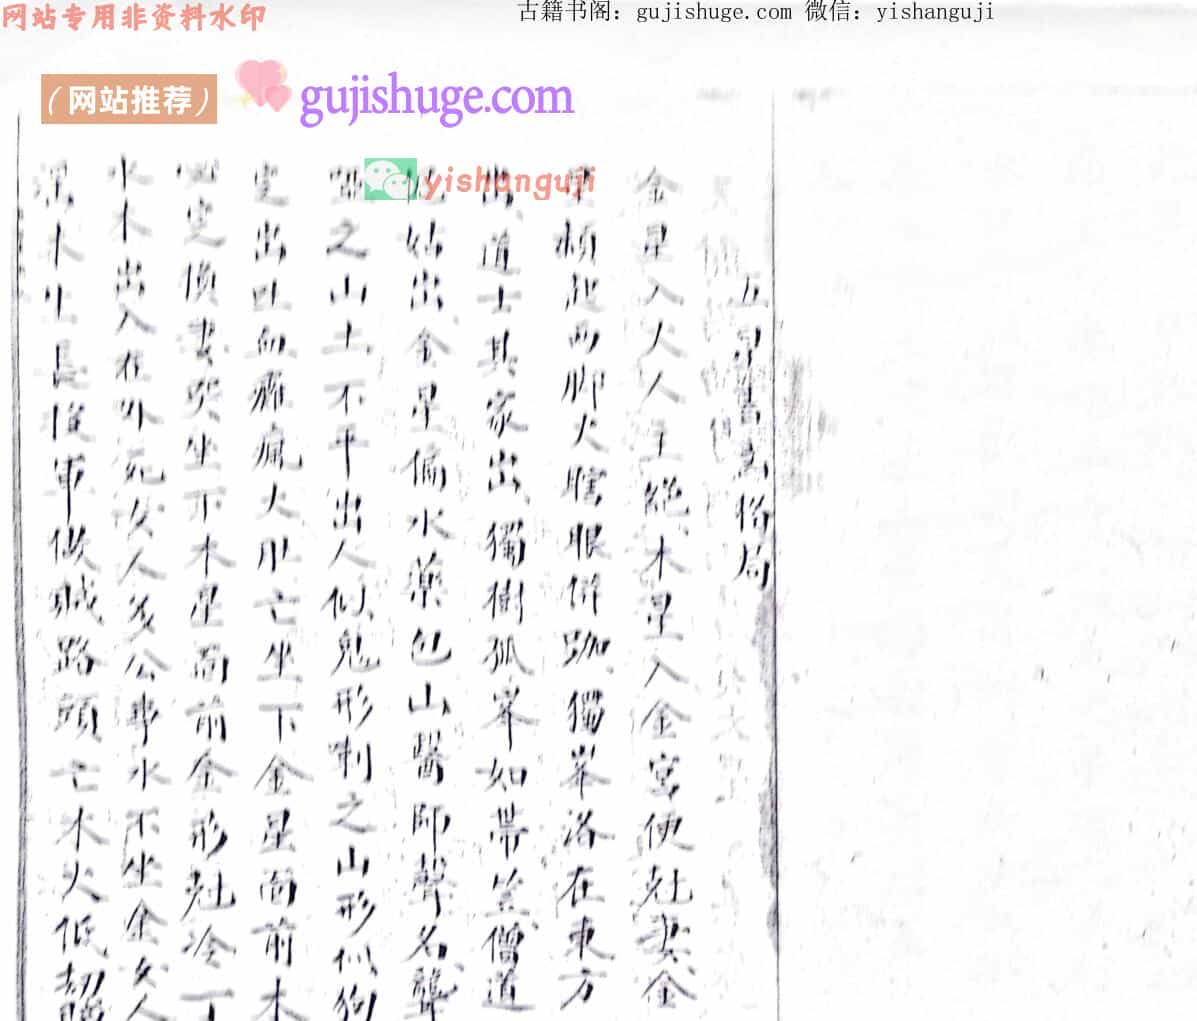 网站专用非资料水印
古籍书阁：gujishuge.com 微信：yishanguji
（网站推荐）
gujishuge.com
yishanguji
五星 格局
金星入火人主絕木星入金宮便尅妻金
起両脚火瞎眼併跏獨峯洛在東方
出道士其家出獨樹狐峯如帶笠僧道
姑出金星偏水藥包山醫師聲名
之山土不平出人似鬼形喇之山形似狗
出吐血癱瘋火形亡坐下金星面前木
妻哭坐下木星面前金形尅冷丁
水木出入在外死女人多公事水不坐金女人
木生長後軍做賊路頭亡木火低